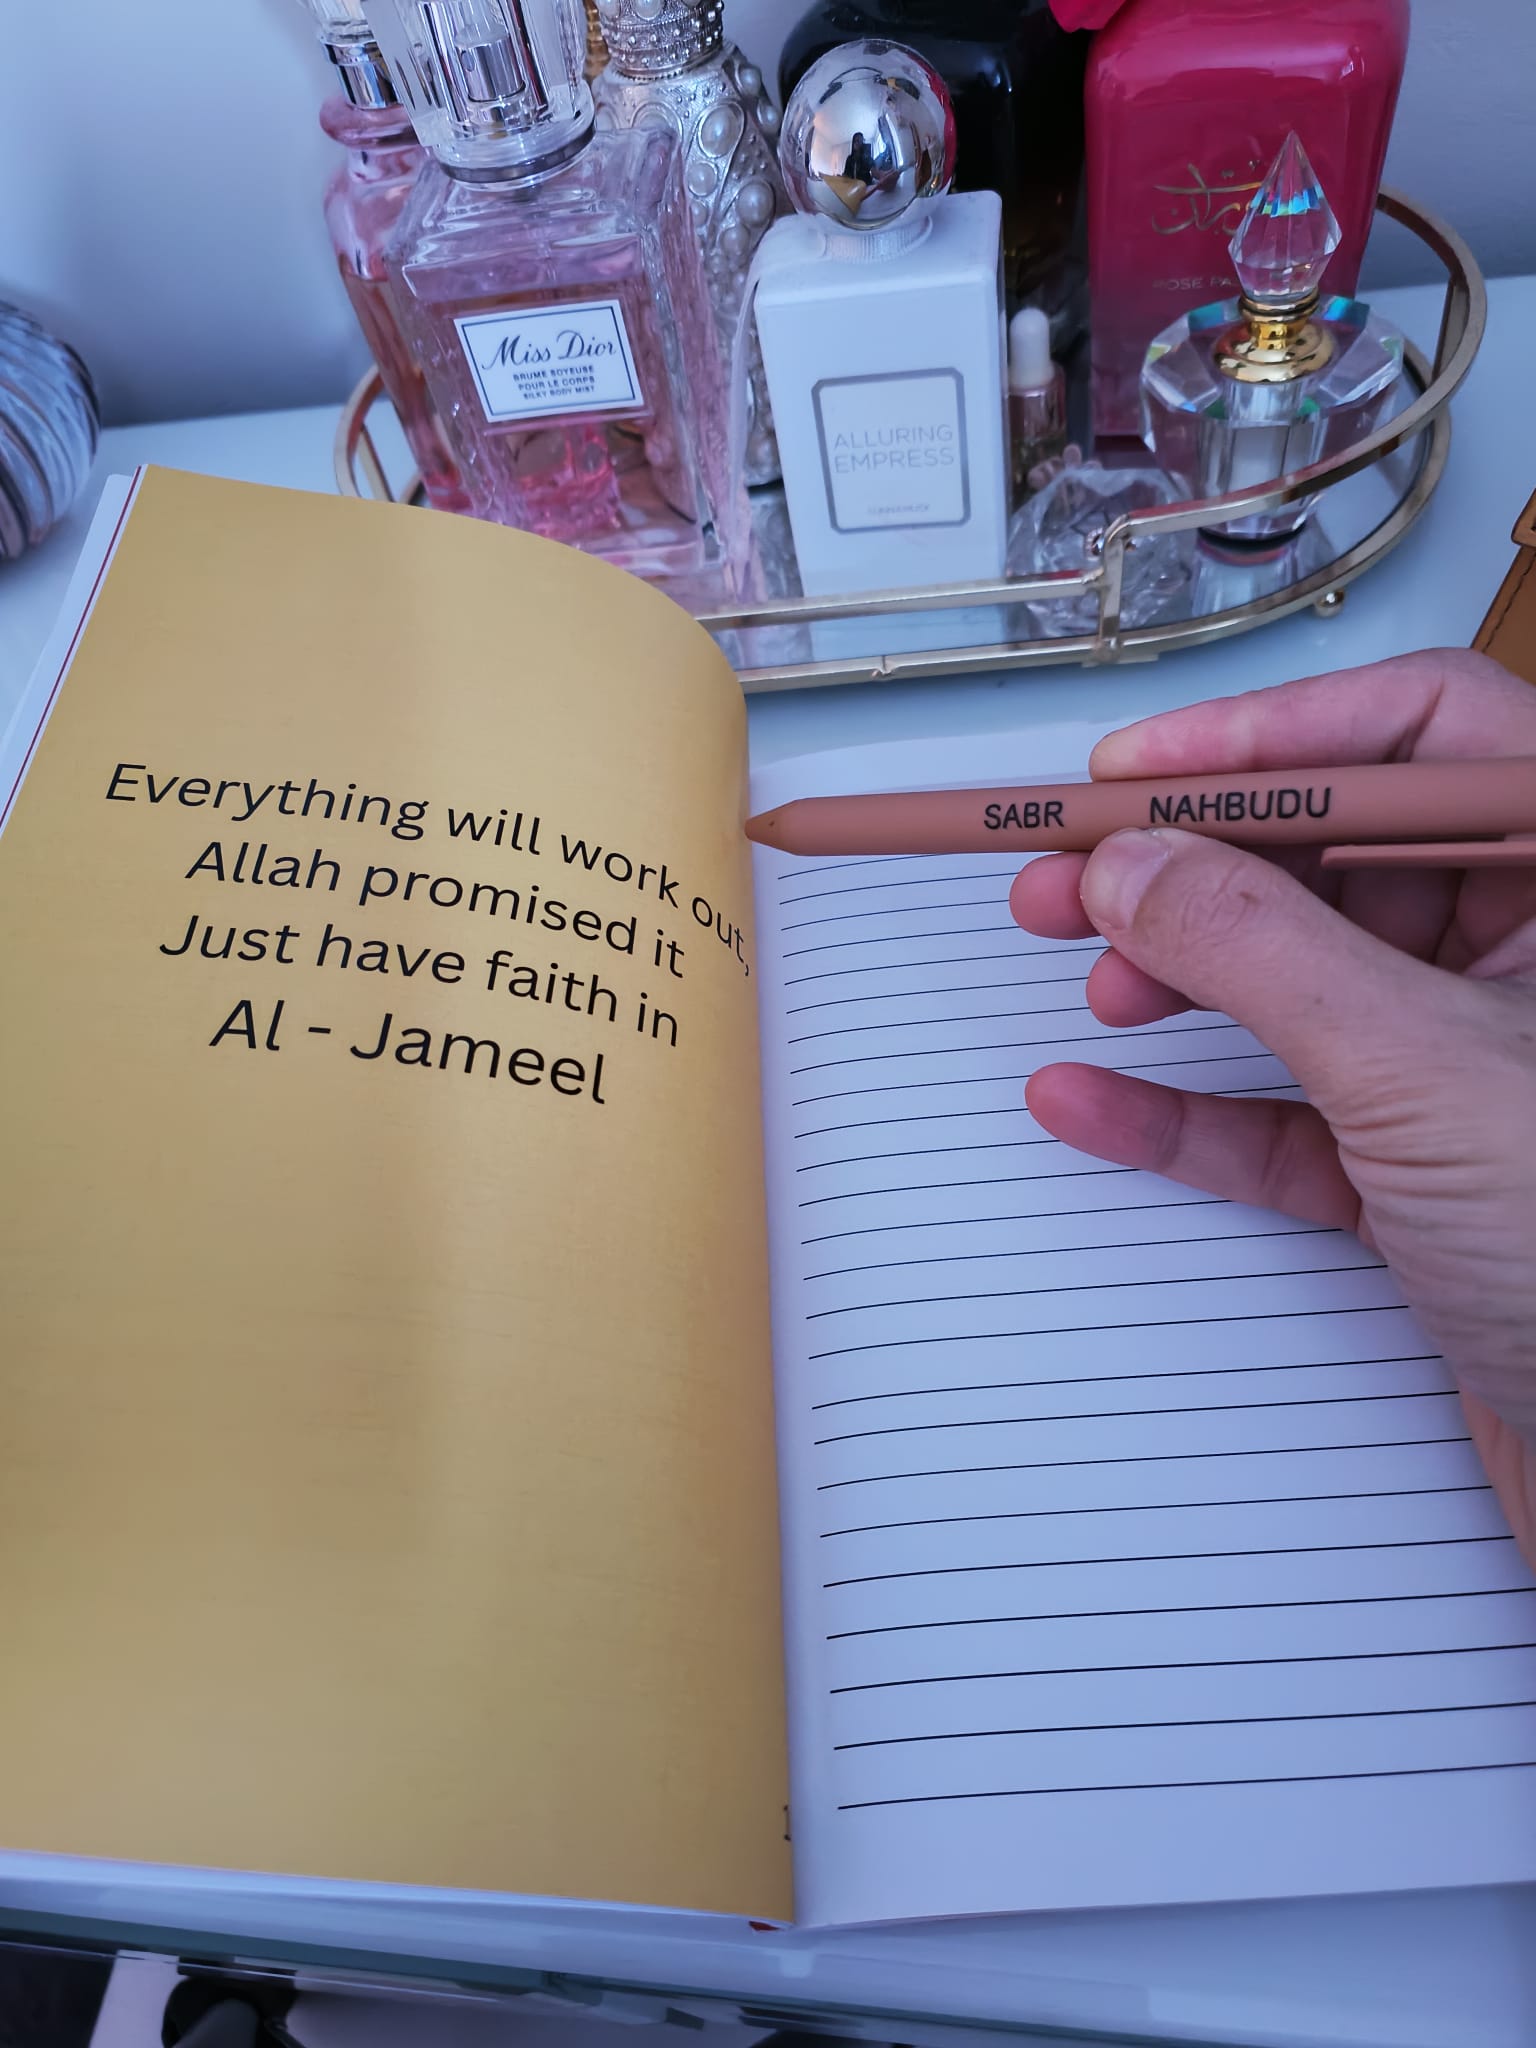 Miss Dior
BRUME SOYEUSE
POUR LE CORPS
SILKY BODY MIST
ALLURING
EMPRESS
ROSE
Everything will work out,
Allah promised it
Just have faith in
Al - Jameel
SABR NAHBUDU